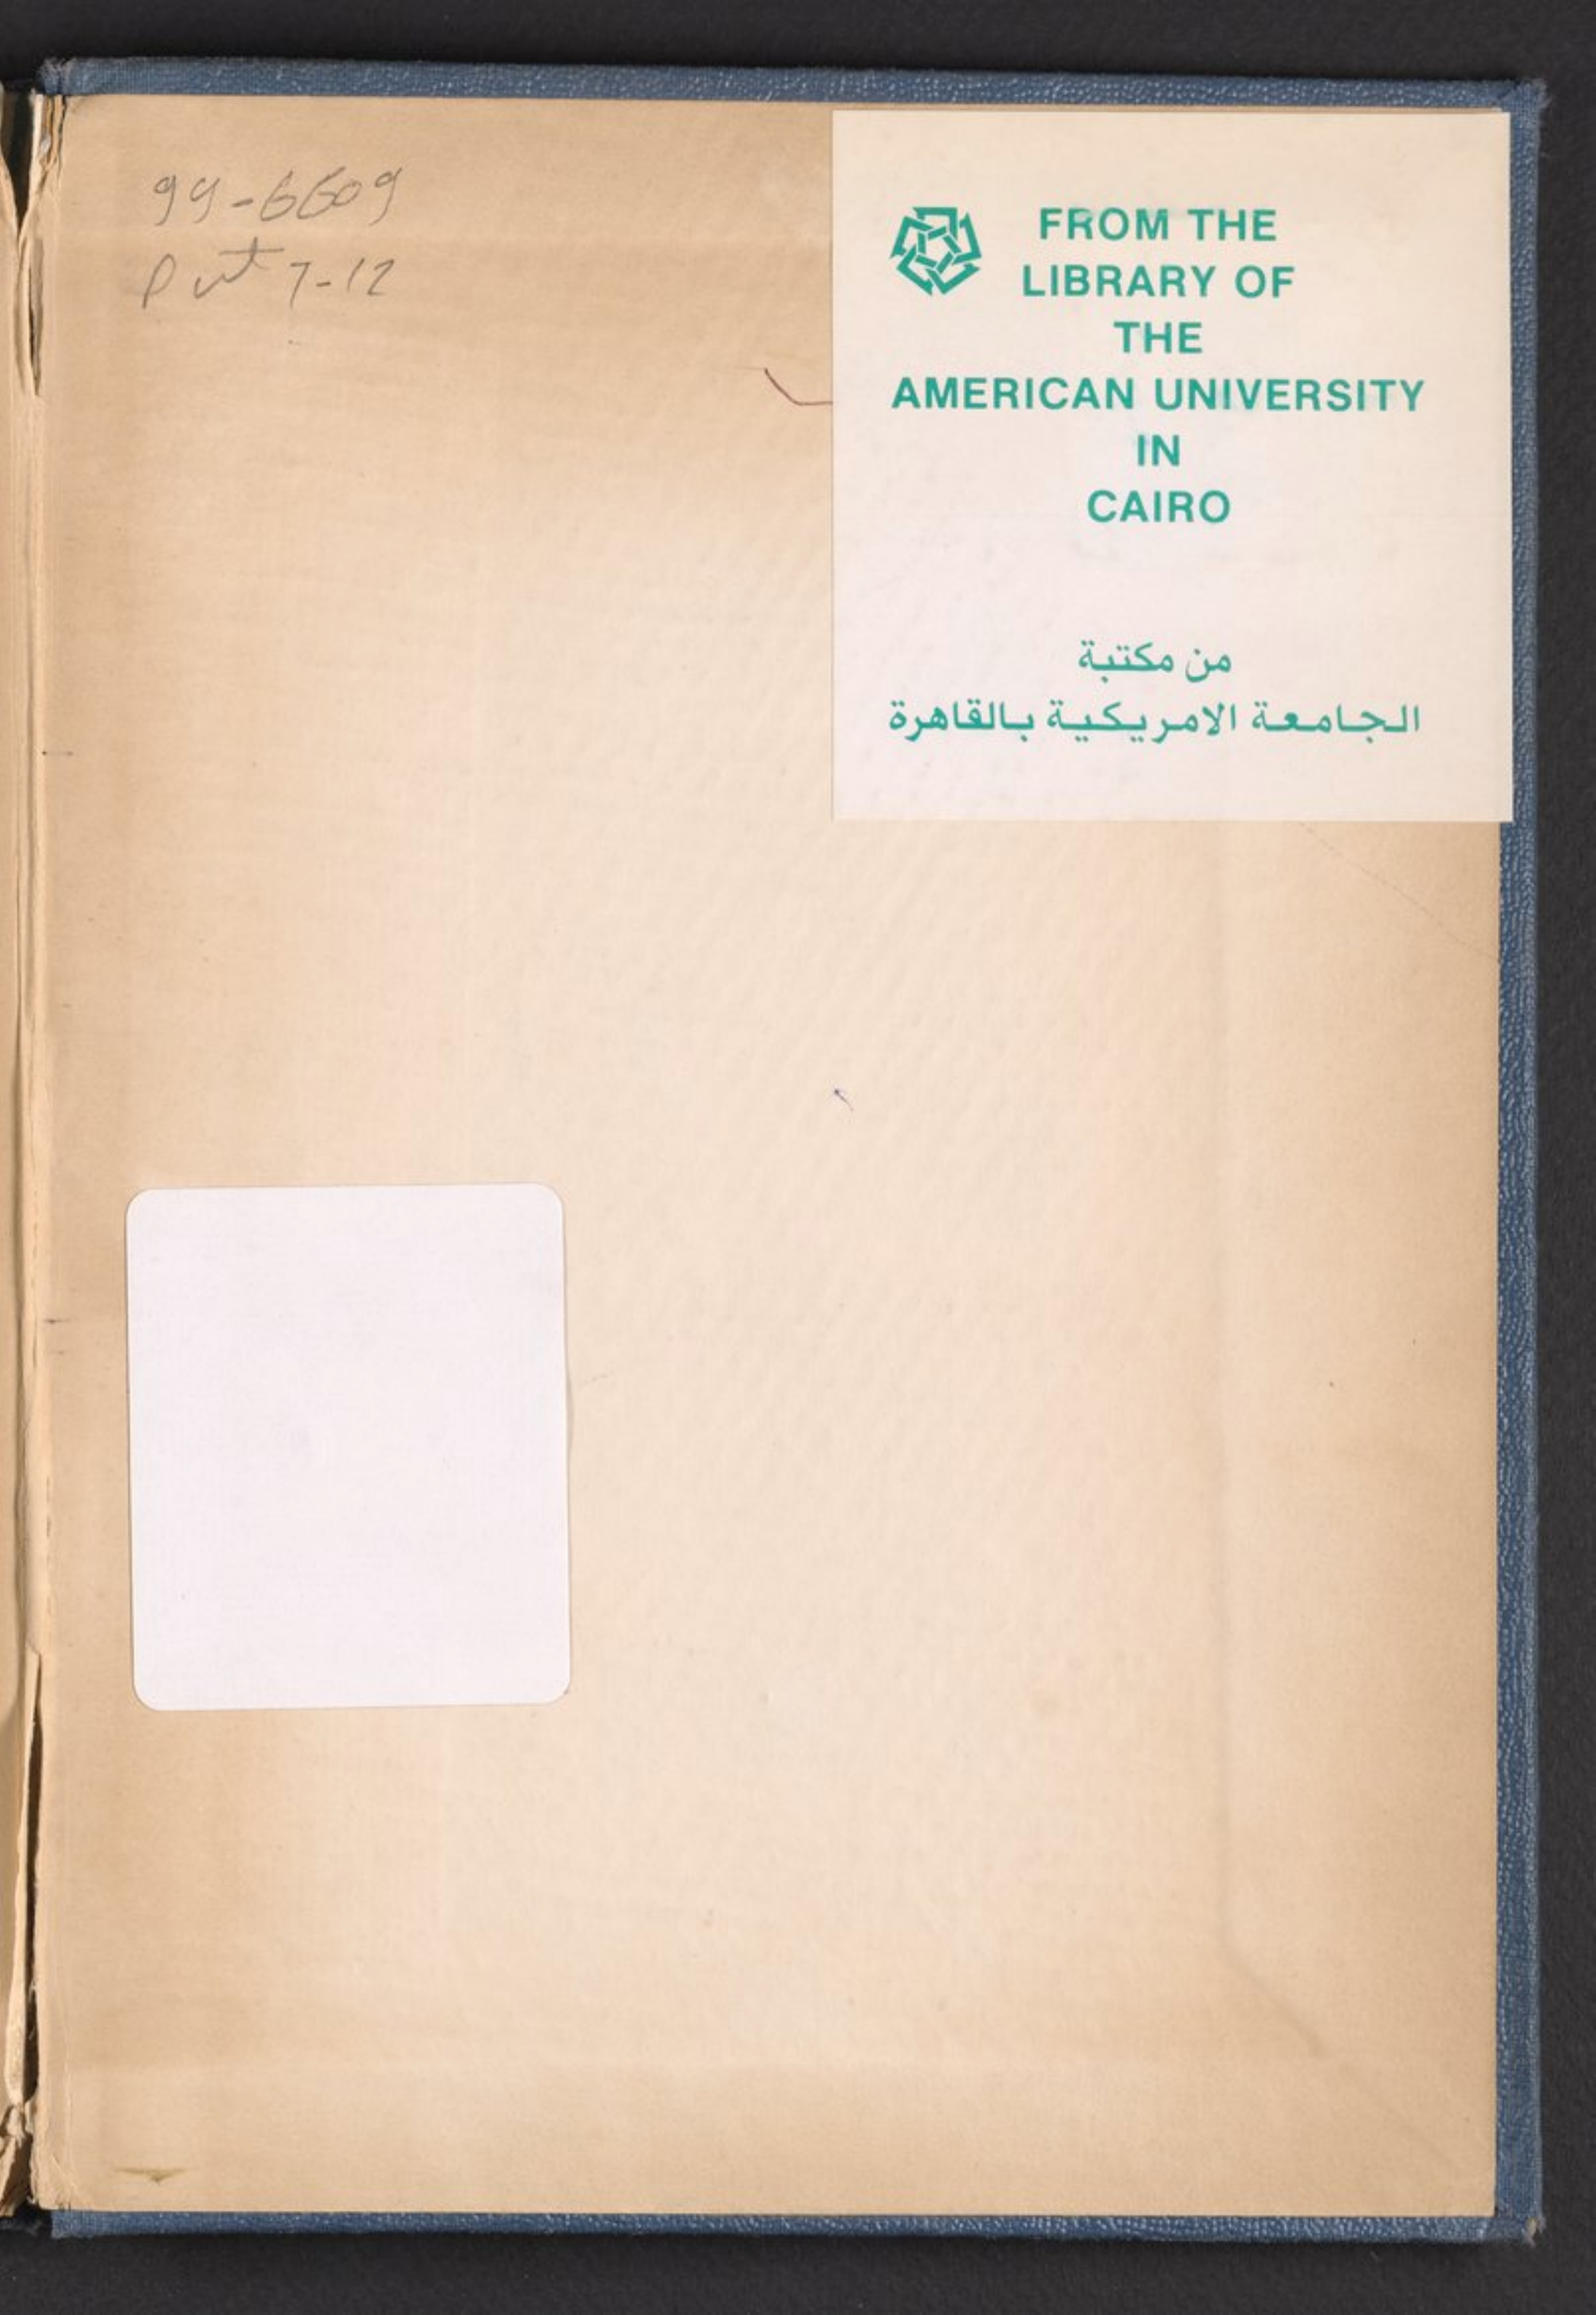 99-6609
Part 7-12
FROM THE
LIBRARY OF
THE
AMERICAN UNIVERSITY
IN
CAIRO
من مكتبة
الجامعة الامريكية بالقاهرة